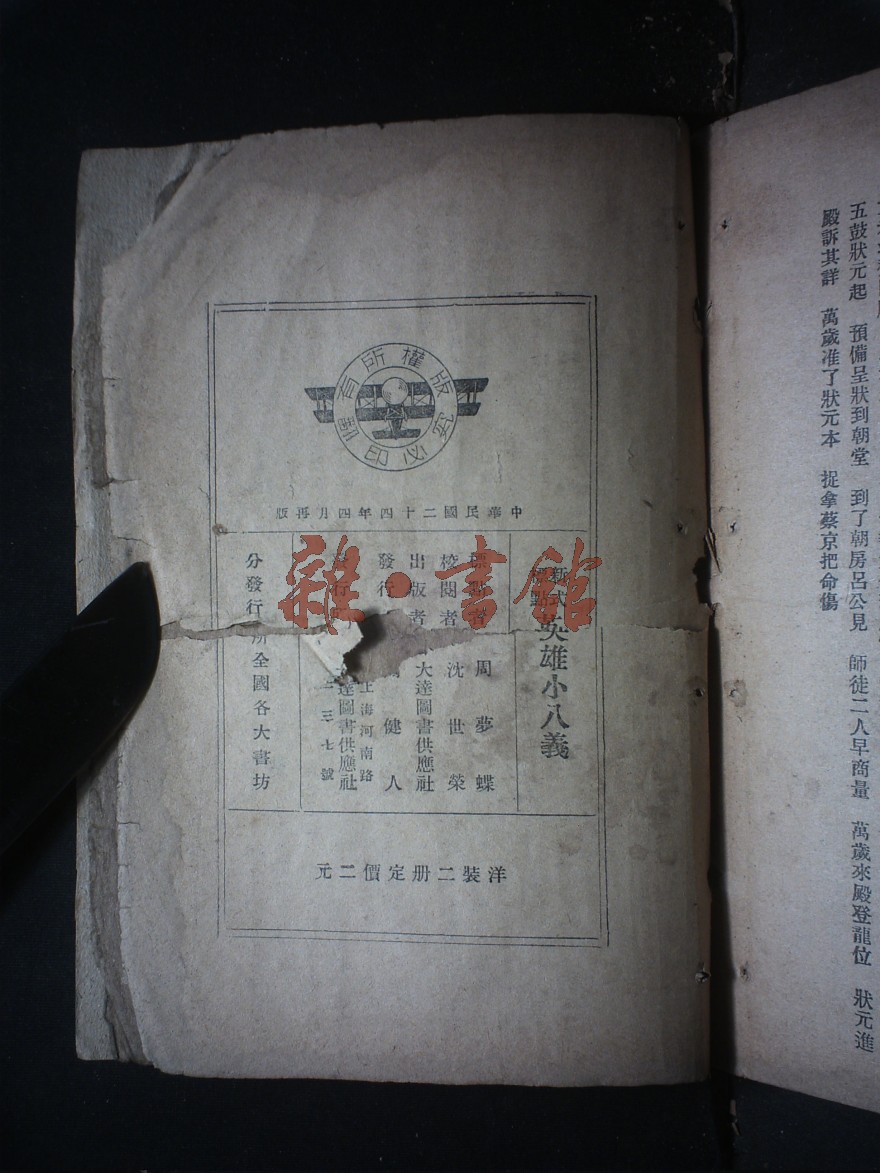 五鼓狀元起　預備呈狀到朝堂　到了朝房呂公見　師徒二人早商量　萬歲來殿登龍位　狀元進
殿訴其詳　萬歲准了狀元本　捉拿蔡京把命傷
版權所有
翻印必究
中華民國二十四年四月再版
新式標點
英雄小八義
標點者　周夢蝶
校閱者　沈世榮
出版者　大達圖書供應社
發行　健人
上海河南路
達圖書供應社
二三七號
分發行所全國各大書坊
洋裝二册定價二元
雜·書館